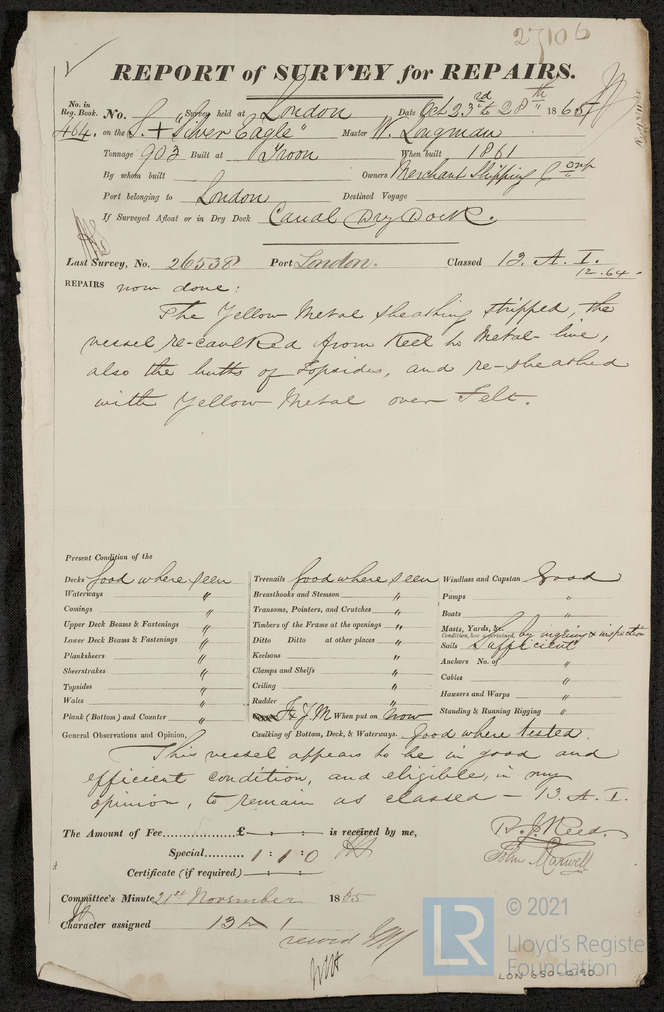 27106
REPORT of SURVEY for REPAIRS.
No. in Reg. Book. No. Survey held at London Date Oct 23rd to 28th 1865
464. on the S. + "Silver Eagle" Master W. Longman
Tonnage 903 Built at Troon When built 1861
By whom built Owners Merchant Shipping Comp
Port belonging to London Destined Voyage
If Surveyed Afloat or in Dry Dock Canal Dry Dock.
Last Survey, No. 26538 Port London. Classed 13. A. I.
12.64
REPAIRS now done:
The Yellow Metal sheathing stripped, the
vessel re-caulked from Keel to Metal-line,
also the butts of Topsides, and re-sheathed
with Yellow Metal over Felt.
Present Condition of the
Decks Good where seen
Waterways "
Comings "
Upper Deck Beams & Fastenings "
Lower Deck Beams & Fastenings "
Planksheers "
Sheerstrakes "
Topsides "
Wales "
Plank (Bottom) and Counter "
Treenails Good where seen
Breasthooks and Stemson "
Transoms, Pointers, and Crutches "
Timbers of the Frame at the openings "
Ditto Ditto at other places "
Keelsons "
Clamps and Shelfs "
Ceiling "
Rudder "
F & Y M When put on Now
Windlass and Capstan Good
Pumps "
Boats "
Masts, Yards, &c. "
Condition, how ascertained, by inquiry & inspection
Sails Sufficient
Anchors No. of "
Cables "
Hausers and Warps "
Standing & Running Rigging "
General Observations and Opinion, Caulking of Bottom, Deck, & Waterways. Good where tested.
This vessel appears to be in good and
efficient condition, and eligible, in my
opinion, to remain as classed – 13. A. I.
The Amount of Fee £ – : – : – is received by me,
Special 1 : 1 : 0
Certificate (if required) – : – : –
B. J. Reed.
John Maxwell
Committee's Minute 21st November 1865
Character assigned 13 A 1
record
© 2021
LR
Lloyd's Registe
Foundation
LON 650-0190